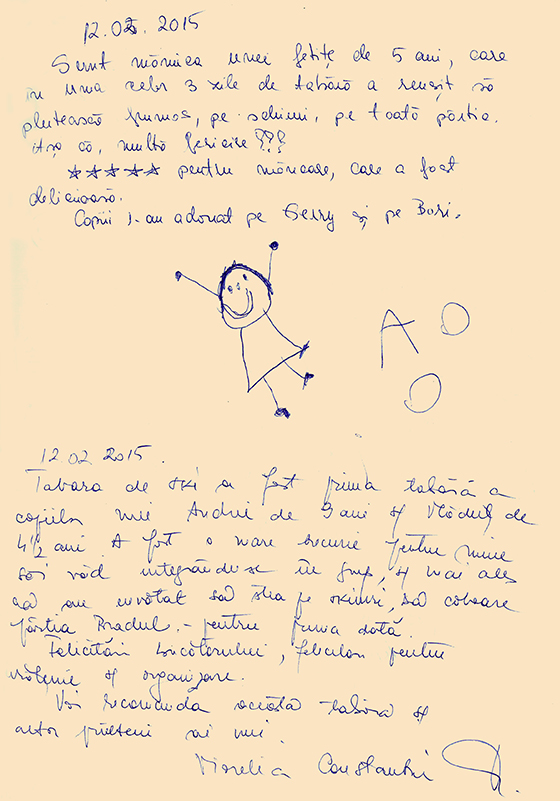 12.02.2015
Sunt mămica unei fetițe de 5 ani, care
în urma celor 3 zile de tabără a reușit să
plutească frumos, pe schiuri, pe toată pârtia.
Așa că, multă fericire!!!
★★★★★ pentru mâncare, care a fost
delicioasă.
Copiii l-au adorat pe Gerry și pe Bori.
A O
O
12 02 2015.
Tabara de ski a fost prima tabără a
copiilor mei Andrei de 9 ani și Vlăduț de
4 1/2 ani. A fost o mare bucurie pentru mine
să-i văd integrându-se în grup, și mai ales
că au învățat să stea pe skiuri, să coboare
pârtia Bradul - pentru prima dată.
Felicitări bucătarului, felicitări pentru
și organizare.
Voi recomanda această tabără și
altor prieteni ai mei.
Viorelia Constantin